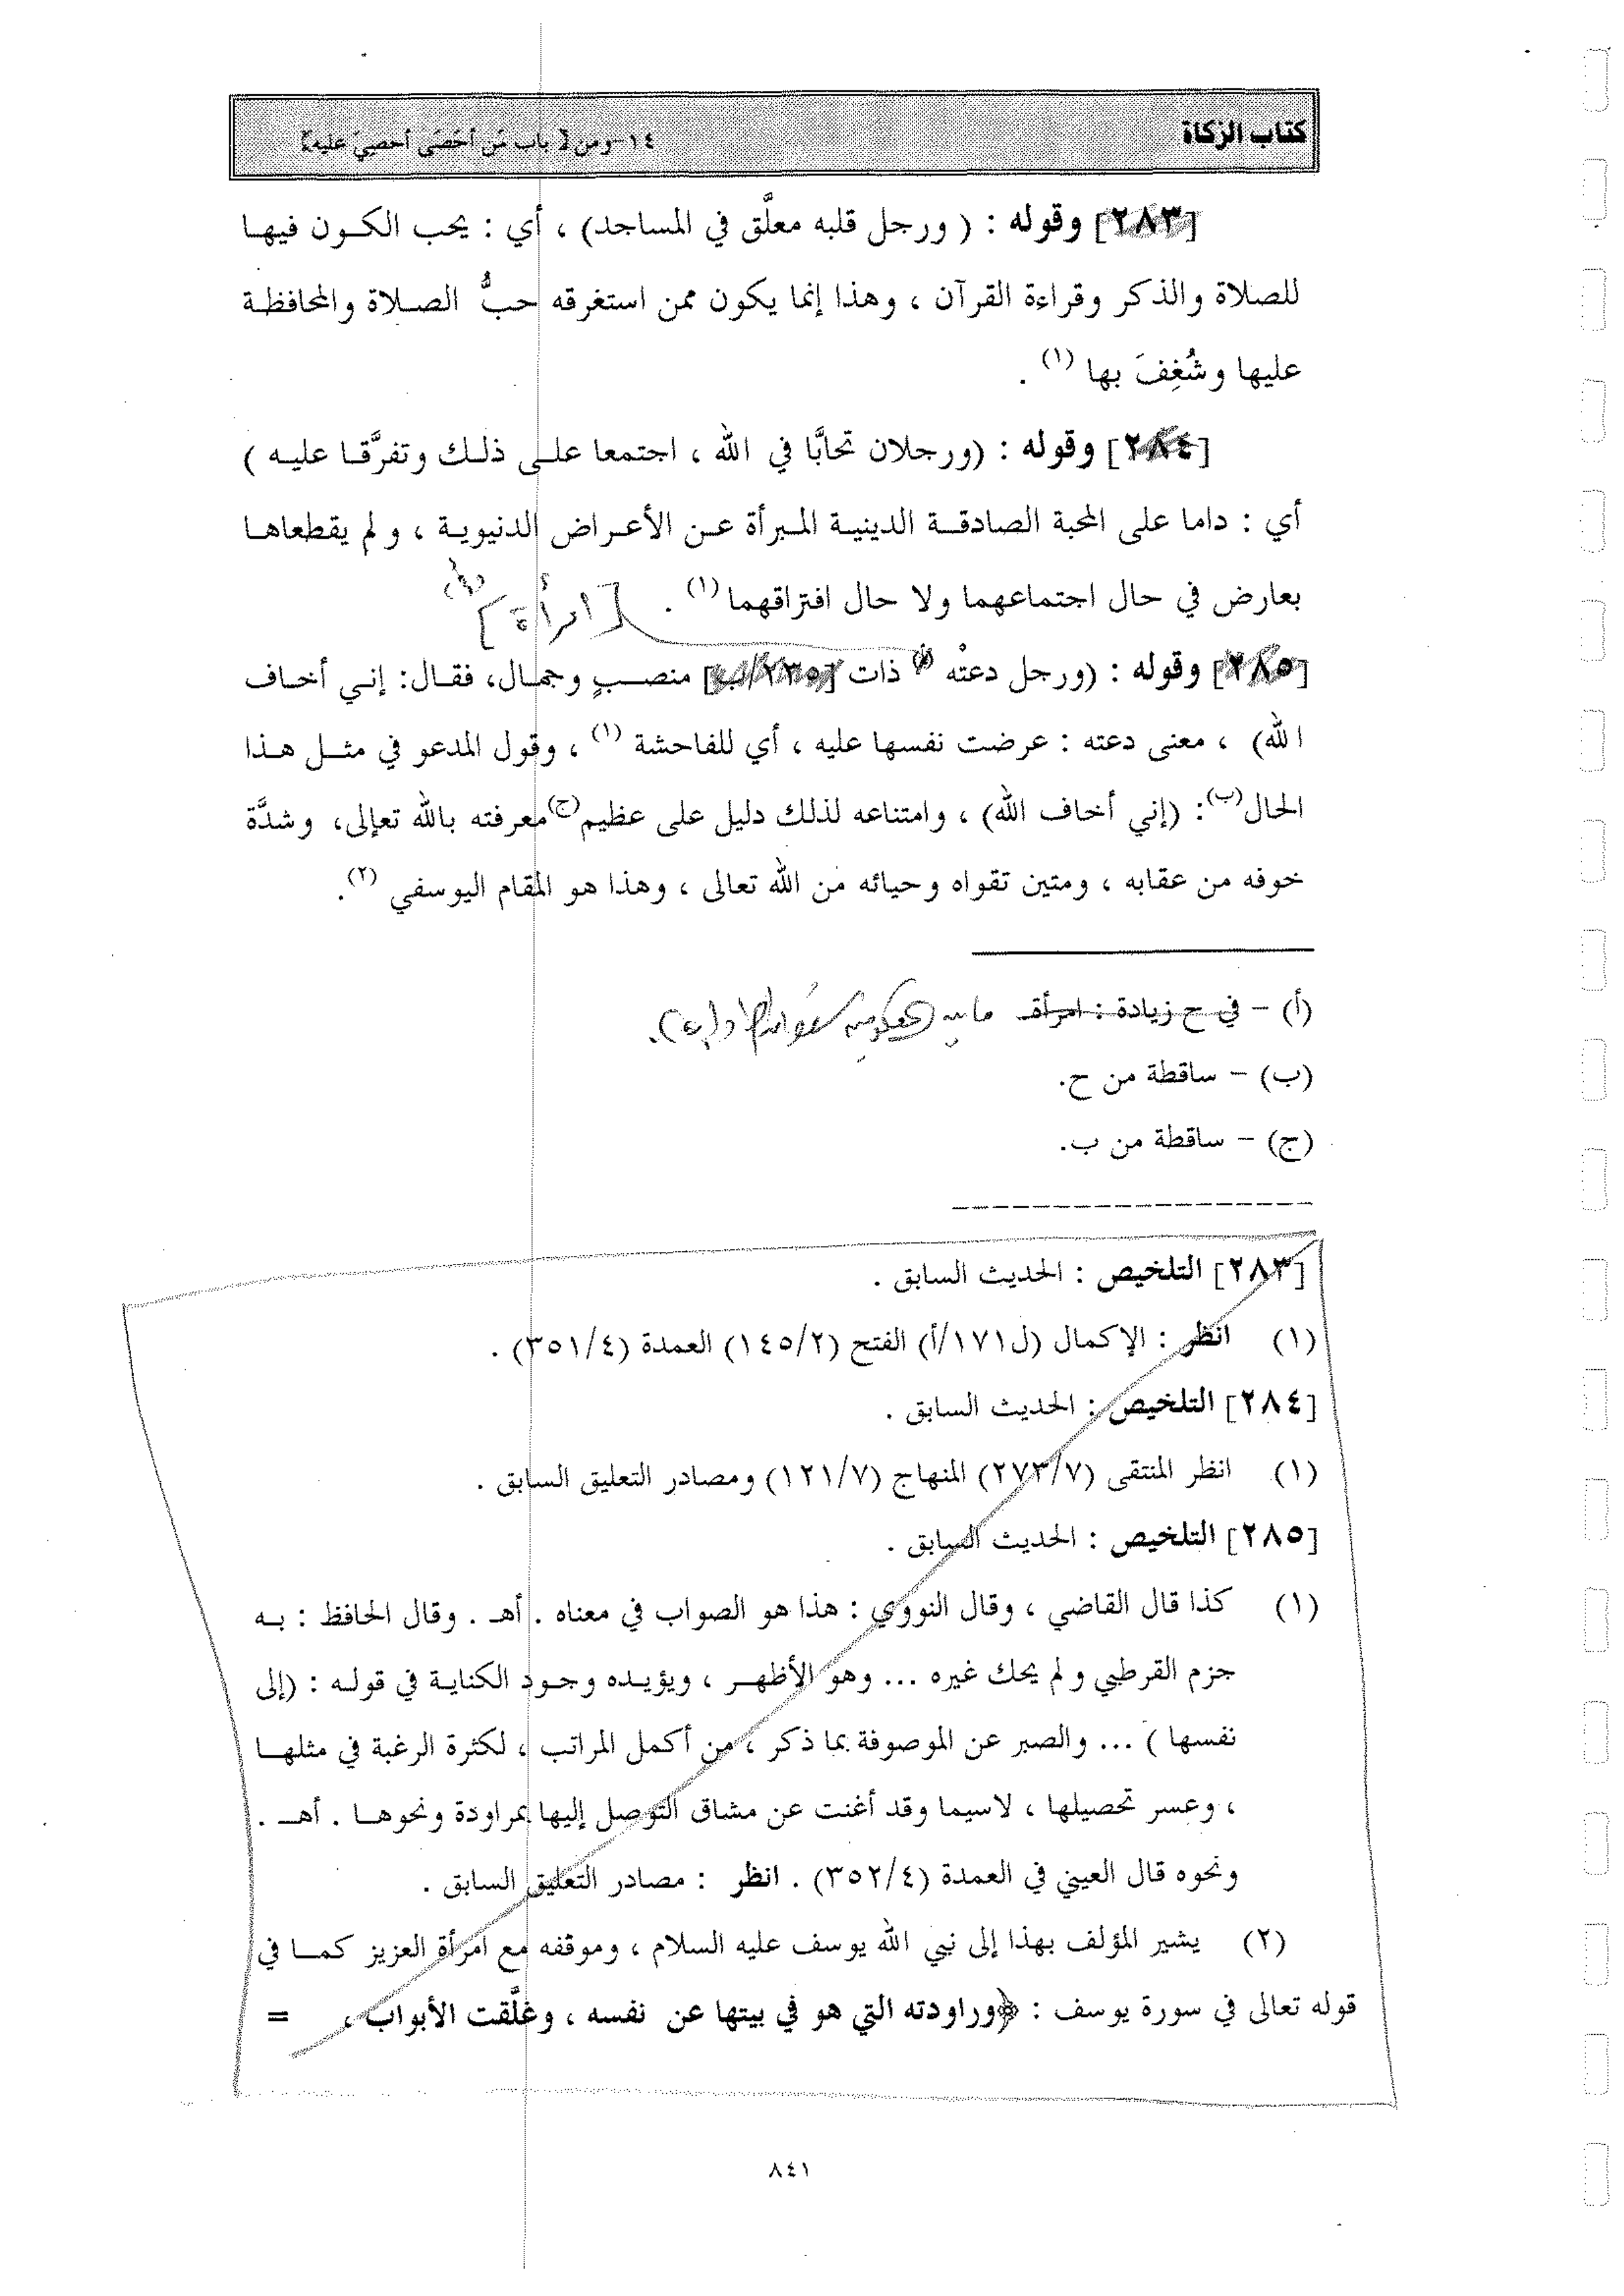 كتاب الزكاة
١٤-ومن [ باب مَن أحْصَى أحصيَ عليه]
[٢٨٣] وقوله : ( ورجل قلبه معلَّق في المساجد) ، أي : يحب الكـون فيهـا
للصلاة والذكر وقراءة القرآن ، وهذا إنما يكون ممن استغرقه حبُّ الصـلاة والمحافظـة
عليها وشُغِفَ بها (١) .
[٢٨٤] وقوله : (ورجلان تحابَّا في الله ، اجتمعا علـى ذلـك وتفرَّقـا عليـه )
أي : داما على المحبة الصادقـة الدينيـة المـبرأة عـن الأعـراض الدنيويـة ، و لم يقطعاهـا
بعارض في حال اجتماعهما ولا حال افتراقهما(١) .
[امرأة] (أ)
[٢٨٥] وقوله : (ورجل دعتْه (أ) ذات [٢٣٥/ب] منصـبٍ وجمـال، فقـال: إنـي أخـاف
الله) ، معنى دعته : عرضت نفسها عليه ، أي للفاحشة (١) ، وقول المدعو في مثـل هـذا
الحال(ب): (إني أخاف الله) ، وامتناعه لذلك دليل على عظيم(ج)معرفته بالله تعالى، وشدَّة
خوفه من عقابه ، ومتين تقواه وحيائه من الله تعالى ، وهذا هو المقام اليوسفي (٢).
(أ) - في ح زيادة : امرأة ما بين
(ب) - ساقطة من ح.
(ج) - ساقطة من ب.
[٢٨٣] التلخيص : الحديث السابق .
(١) انظر : الإكمال (ل١٧١/أ) الفتح (١٤٥/٢) العمدة (٣٥١/٤) .
[٢٨٤] التلخيص : الحديث السابق .
(١) انظر المنتقى (٢٧٣/٧) المنهاج (١٢١/٧) ومصادر التعليق السابق .
[٢٨٥] التلخيص : الحديث السابق .
(١) كذا قال القاضي ، وقال النووي : هذا هو الصواب في معناه . أهـ . وقال الحافظ : بـه
جزم القرطبي و لم يحك غيره ... وهو الأظهـر ، ويؤيـده وجـود الكنايـة في قولـه : (إلى
نفسها ) ... والصبر عن الموصوفة بما ذكر ، من أكمل المراتب ، لكثرة الرغبة في مثلهـا
، وعسر تحصيلها ، لاسيما وقد أغنت عن مشاق التوصل إليها بمراودة ونحوهـا . أهـ .
ونحوه قال العيني في العمدة (٣٥٢/٤) . انظر : مصادر التعليق السابق .
(٢) يشير المؤلف بهذا إلى نبي الله يوسف عليه السلام ، وموقفه مع امرأة العزيز كمـا في
قوله تعالى في سورة يوسف : ﴿وراودته التي هو في بيتها عن نفسه ، وغلَّقت الأبواب ، =
٨٤١